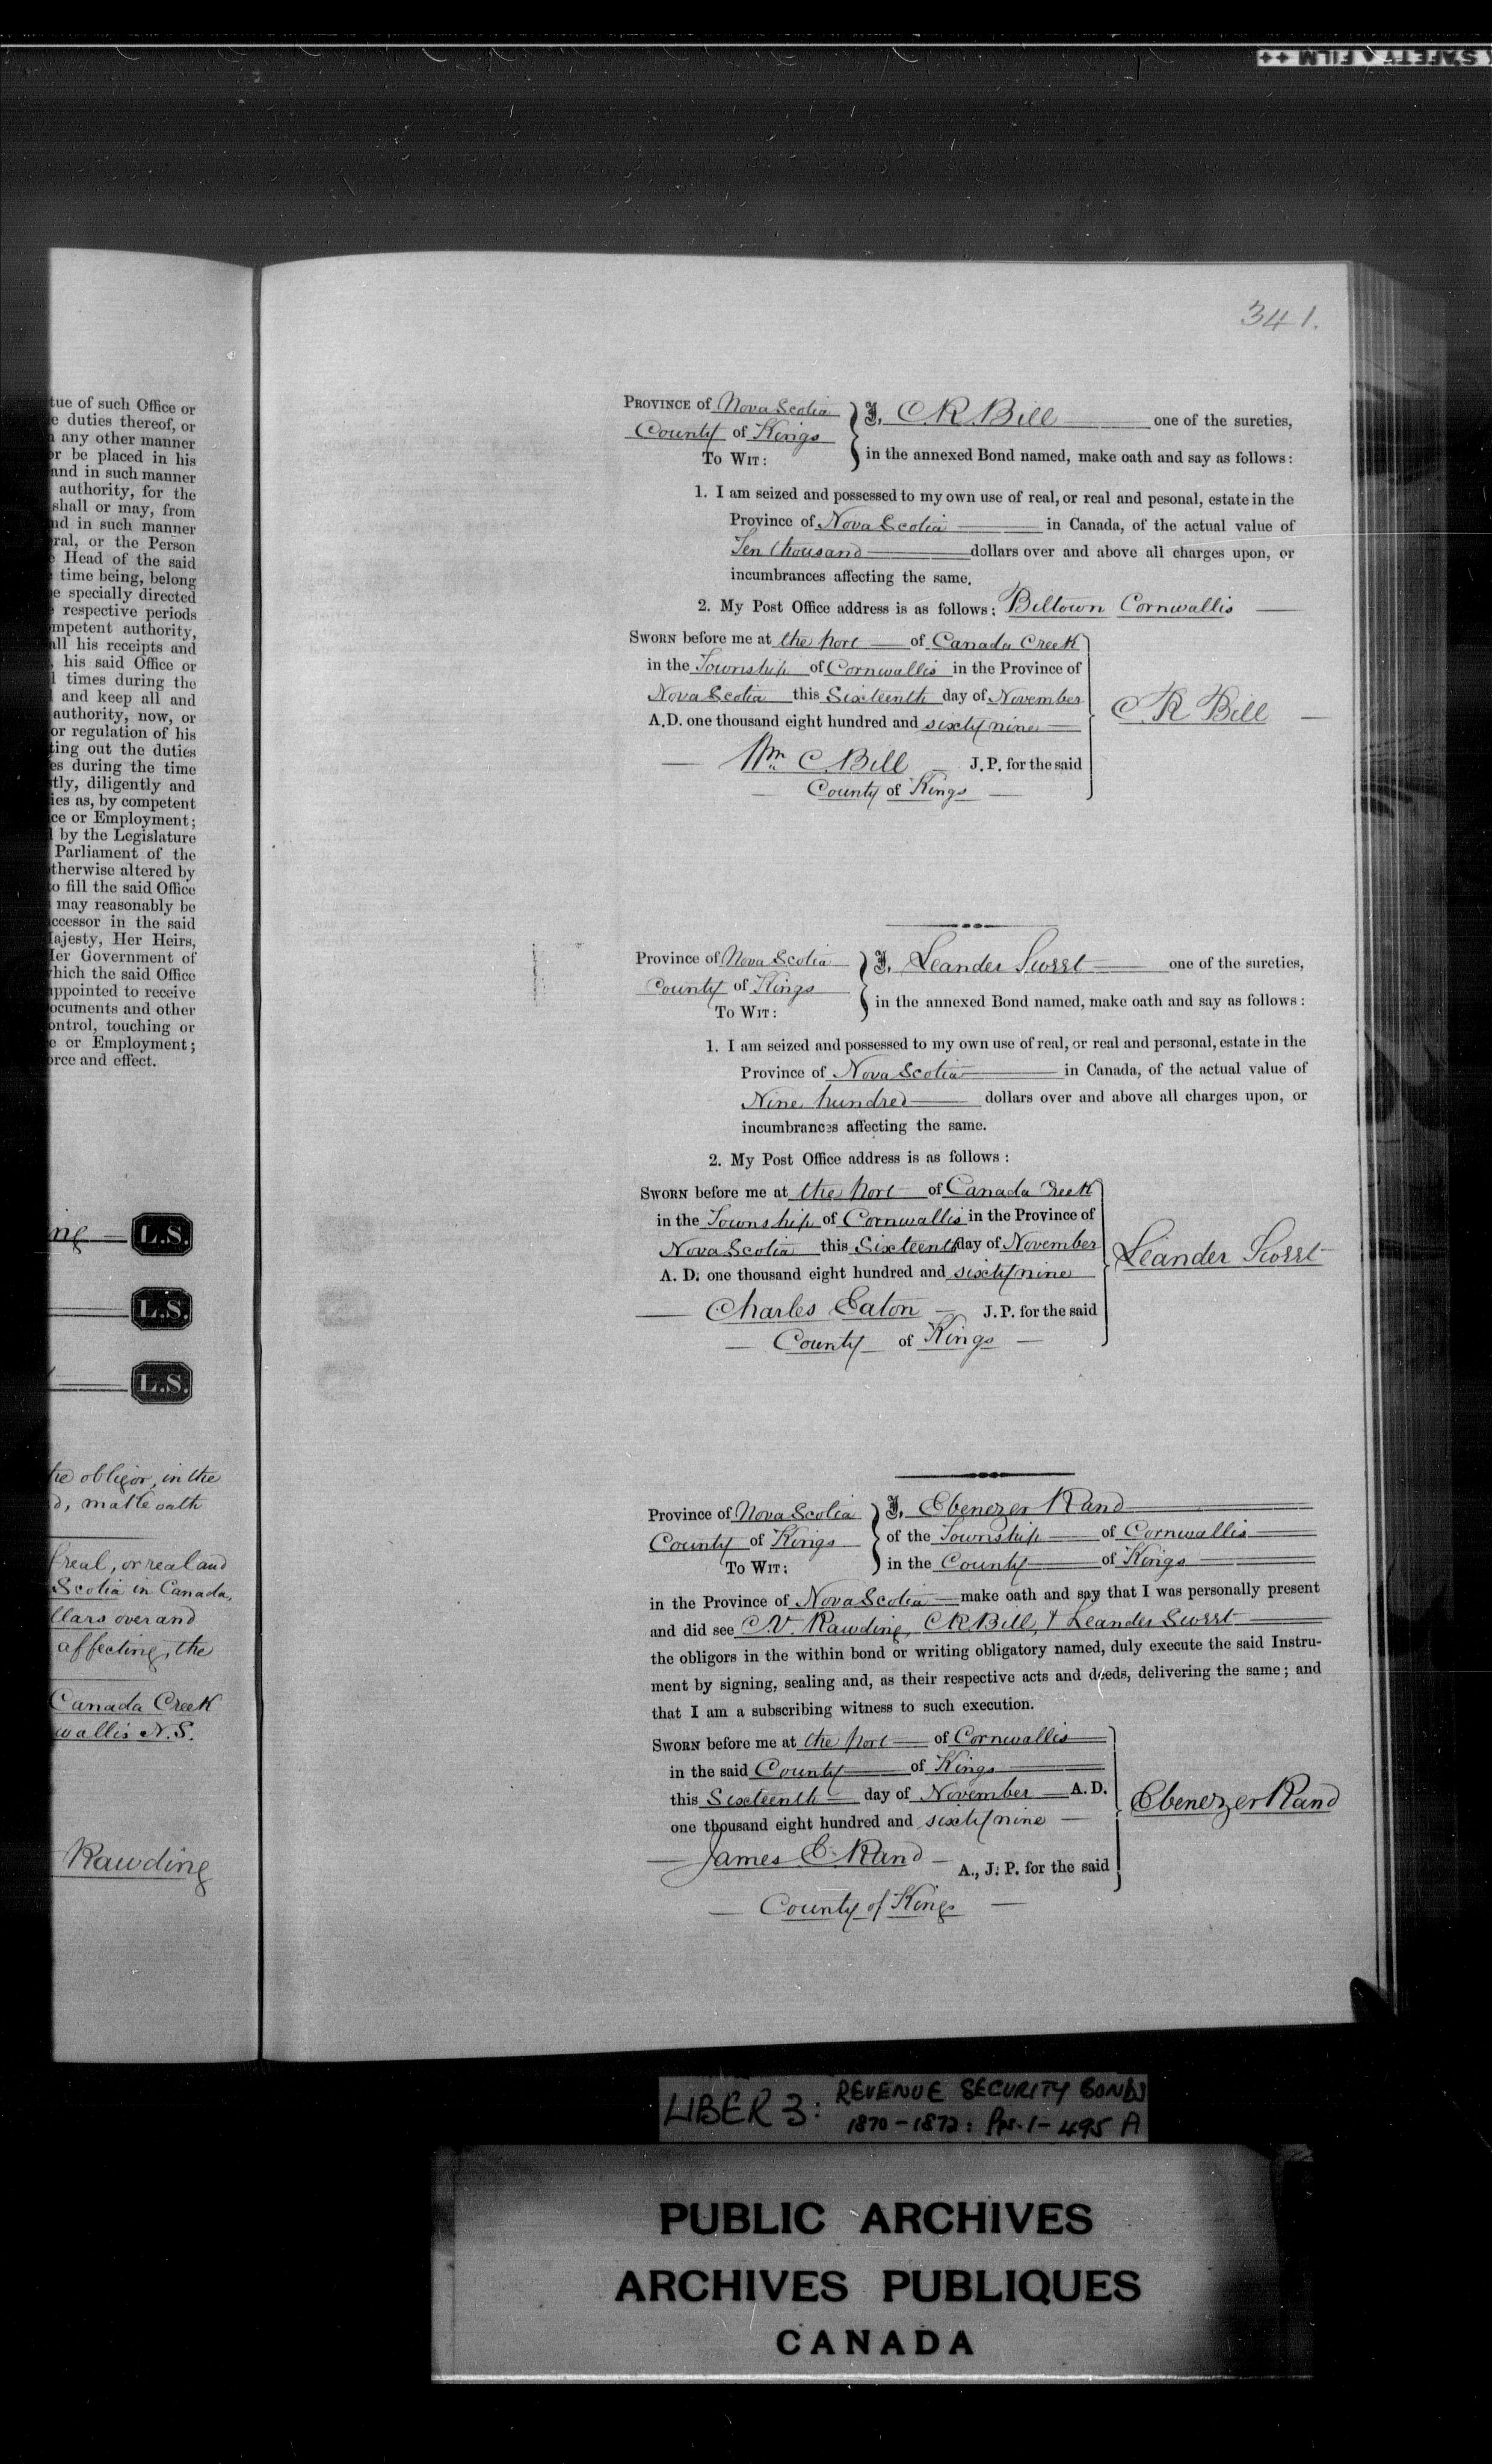 SAFETY FILM ++
tue of such Office or
e duties thereof, or
any other manner
or be placed in his
and in such manner
authority, for the
shall or may, from
nd in such manner
ral, or the Person
Head of the said
time being, belong
e specially directed
respective periods
mpetent authority,
all his receipts and
, his said Office or
l times during the
and keep all and
authority, now, or
or regulation of his
ting out the duties
es during the time
tly, diligently and
ies as, by competent
ce or Employment;
l by the Legislature
Parliament of the
therwise altered by
o fill the said Office
may reasonably be
ccessor in the said
Majesty, Her Heirs,
Her Government of
which the said Office
appointed to receive
ocuments and other
ontrol, touching or
e or Employment;
orce and effect.
ing L.S.
L.S.
L.S.
he obligor, in the
d, make oath
freal, or real and
Scotia in Canada,
llars over and
affecting, the
Canada Creek
wallis N.S.
Rawding
341.
PROVINCE of Nova Scotia
County of Kings
TO WIT:
I, C R Bill one of the sureties,
in the annexed Bond named, make oath and say as follows:
1. I am seized and possessed to my own use of real, or real and pesonal, estate in the
Province of Nova Scotia in Canada, of the actual value of
Ten thousand dollars over and above all charges upon, or
incumbrances affecting the same.
2. My Post Office address is as follows: Biltown Cornwallis
SWORN before me at the port of Canada Creek
in the Township of Cornwallis in the Province of
Nova Scotia this Sixteenth day of November
A.D. one thousand eight hundred and sixty nine
C R Bill
Wm C. Bill J. P. for the said
County of Kings
Province of Nova Scotia
County of Kings
TO WIT:
I, Leander Sweet one of the sureties,
in the annexed Bond named, make oath and say as follows:
1. I am seized and possessed to my own use of real, or real and personal, estate in the
Province of Nova Scotia in Canada, of the actual value of
Nine hundred dollars over and above all charges upon, or
incumbrances affecting the same.
2. My Post Office address is as follows:
SWORN before me at the port of Canada Creek
in the Township of Cornwallis in the Province of
Nova Scotia this Sixteenth day of November
A. D. one thousand eight hundred and sixty nine
Leander Sweet
Charles Eaton J. P. for the said
County of Kings
Province of Nova Scotia
County of Kings
TO WIT:
I, Ebenezer Rand
of the Township of Cornwallis
in the County of Kings
in the Province of Nova Scotia make oath and say that I was personally present
and did see C V. Rawding, C R Bill, & Leander Sweet
the obligors in the within bond or writing obligatory named, duly execute the said Instru-
ment by signing, sealing and, as their respective acts and deeds, delivering the same; and
that I am a subscribing witness to such execution.
SWORN before me at the port of Cornwallis
in the said County of Kings
this Sixteenth day of November A. D.
one thousand eight hundred and sixty nine
Ebenezer Rand
James C. Rand A., J. P. for the said
County of Kings
LIBER 3: REVENUE SECURITY BONDS
1870-1872: Pps. 1-495 A
PUBLIC ARCHIVES
ARCHIVES PUBLIQUES
CANADA